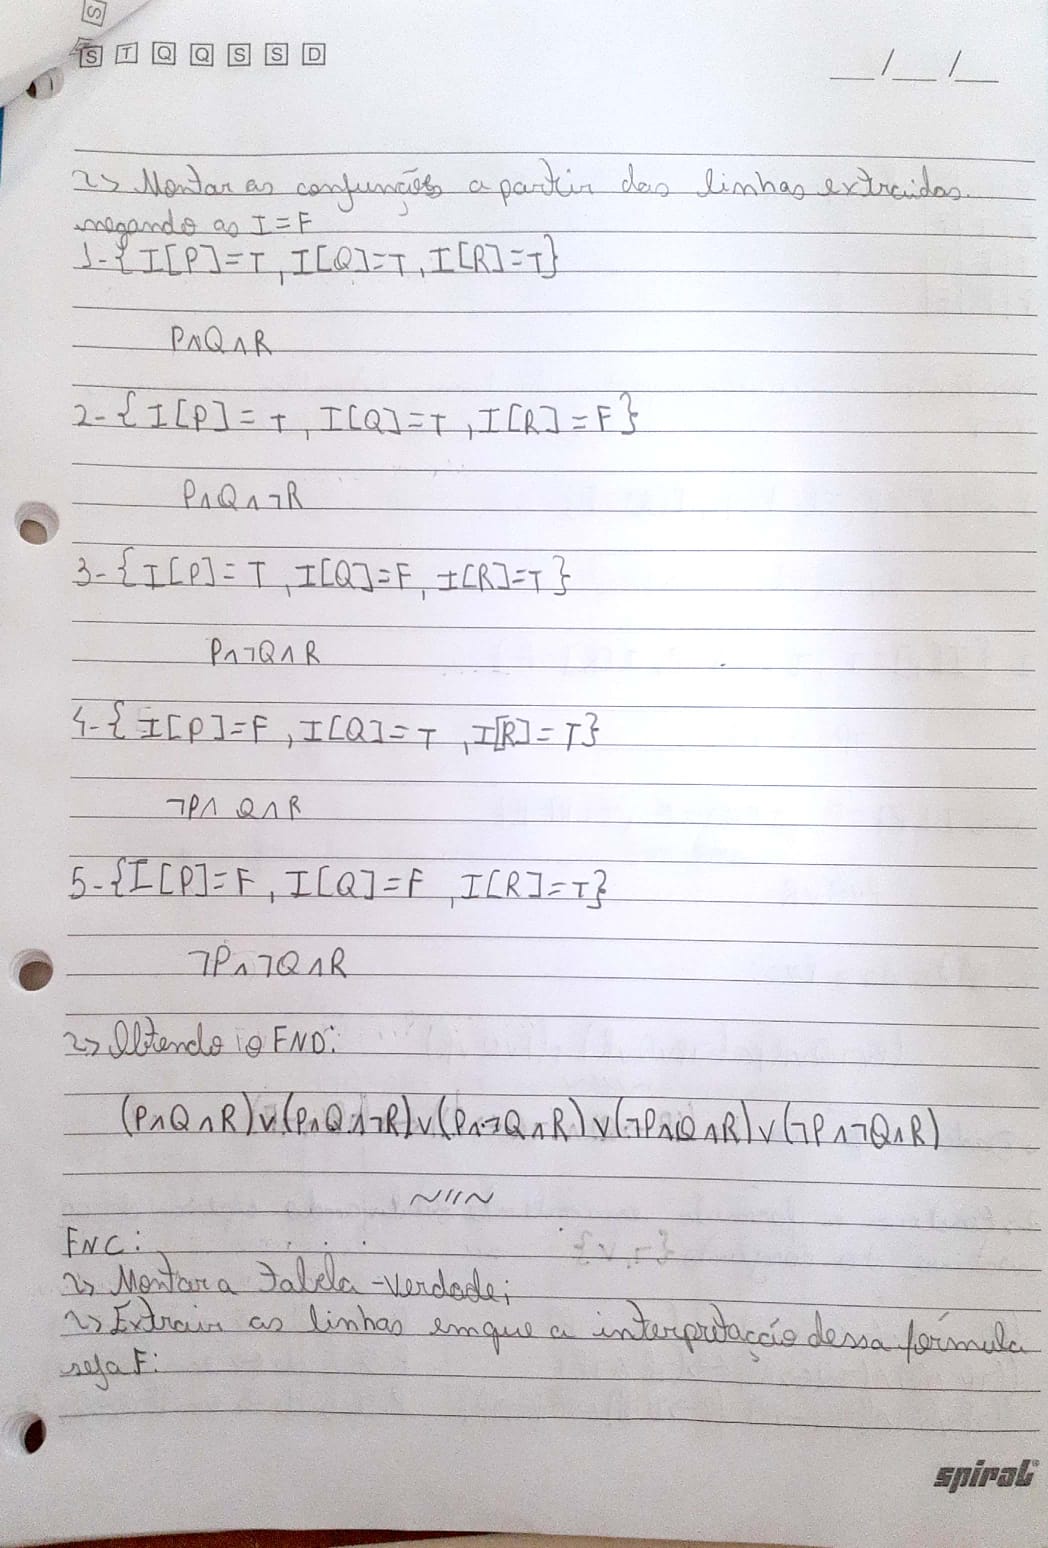 S
S T Q Q S S D
__/__/__
↳ Montar as conjunções a partir das linhas extraidas
negando as I=F
1-{I[P]=T, I[Q]=T, I[R]=T}
P∧Q∧R
2-{I[P]=T, I[Q]=T, I[R]=F}
P∧Q∧¬R
3-{I[P]=T, I[Q]=F, I[R]=T}
P∧¬Q∧R
4-{I[P]=F, I[Q]=T, I[R]=T}
¬P∧Q∧R
5-{I[P]=F, I[Q]=F, I[R]=T}
¬P∧¬Q∧R
↳ Obtendo a FND:
(P∧Q∧R)∨(P∧Q∧¬R)∨(P∧¬Q∧R)∨(¬P∧Q∧R)∨(¬P∧¬Q∧R)
~//~
FNC:
↳ Montar a Tabela-Verdade;
↳ Extrair as linhas em que a interpretação dessa fórmula
seja F:
spiral